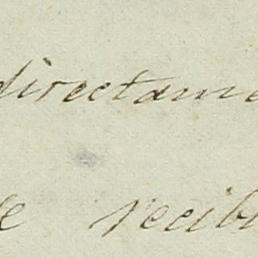 directame
e recib